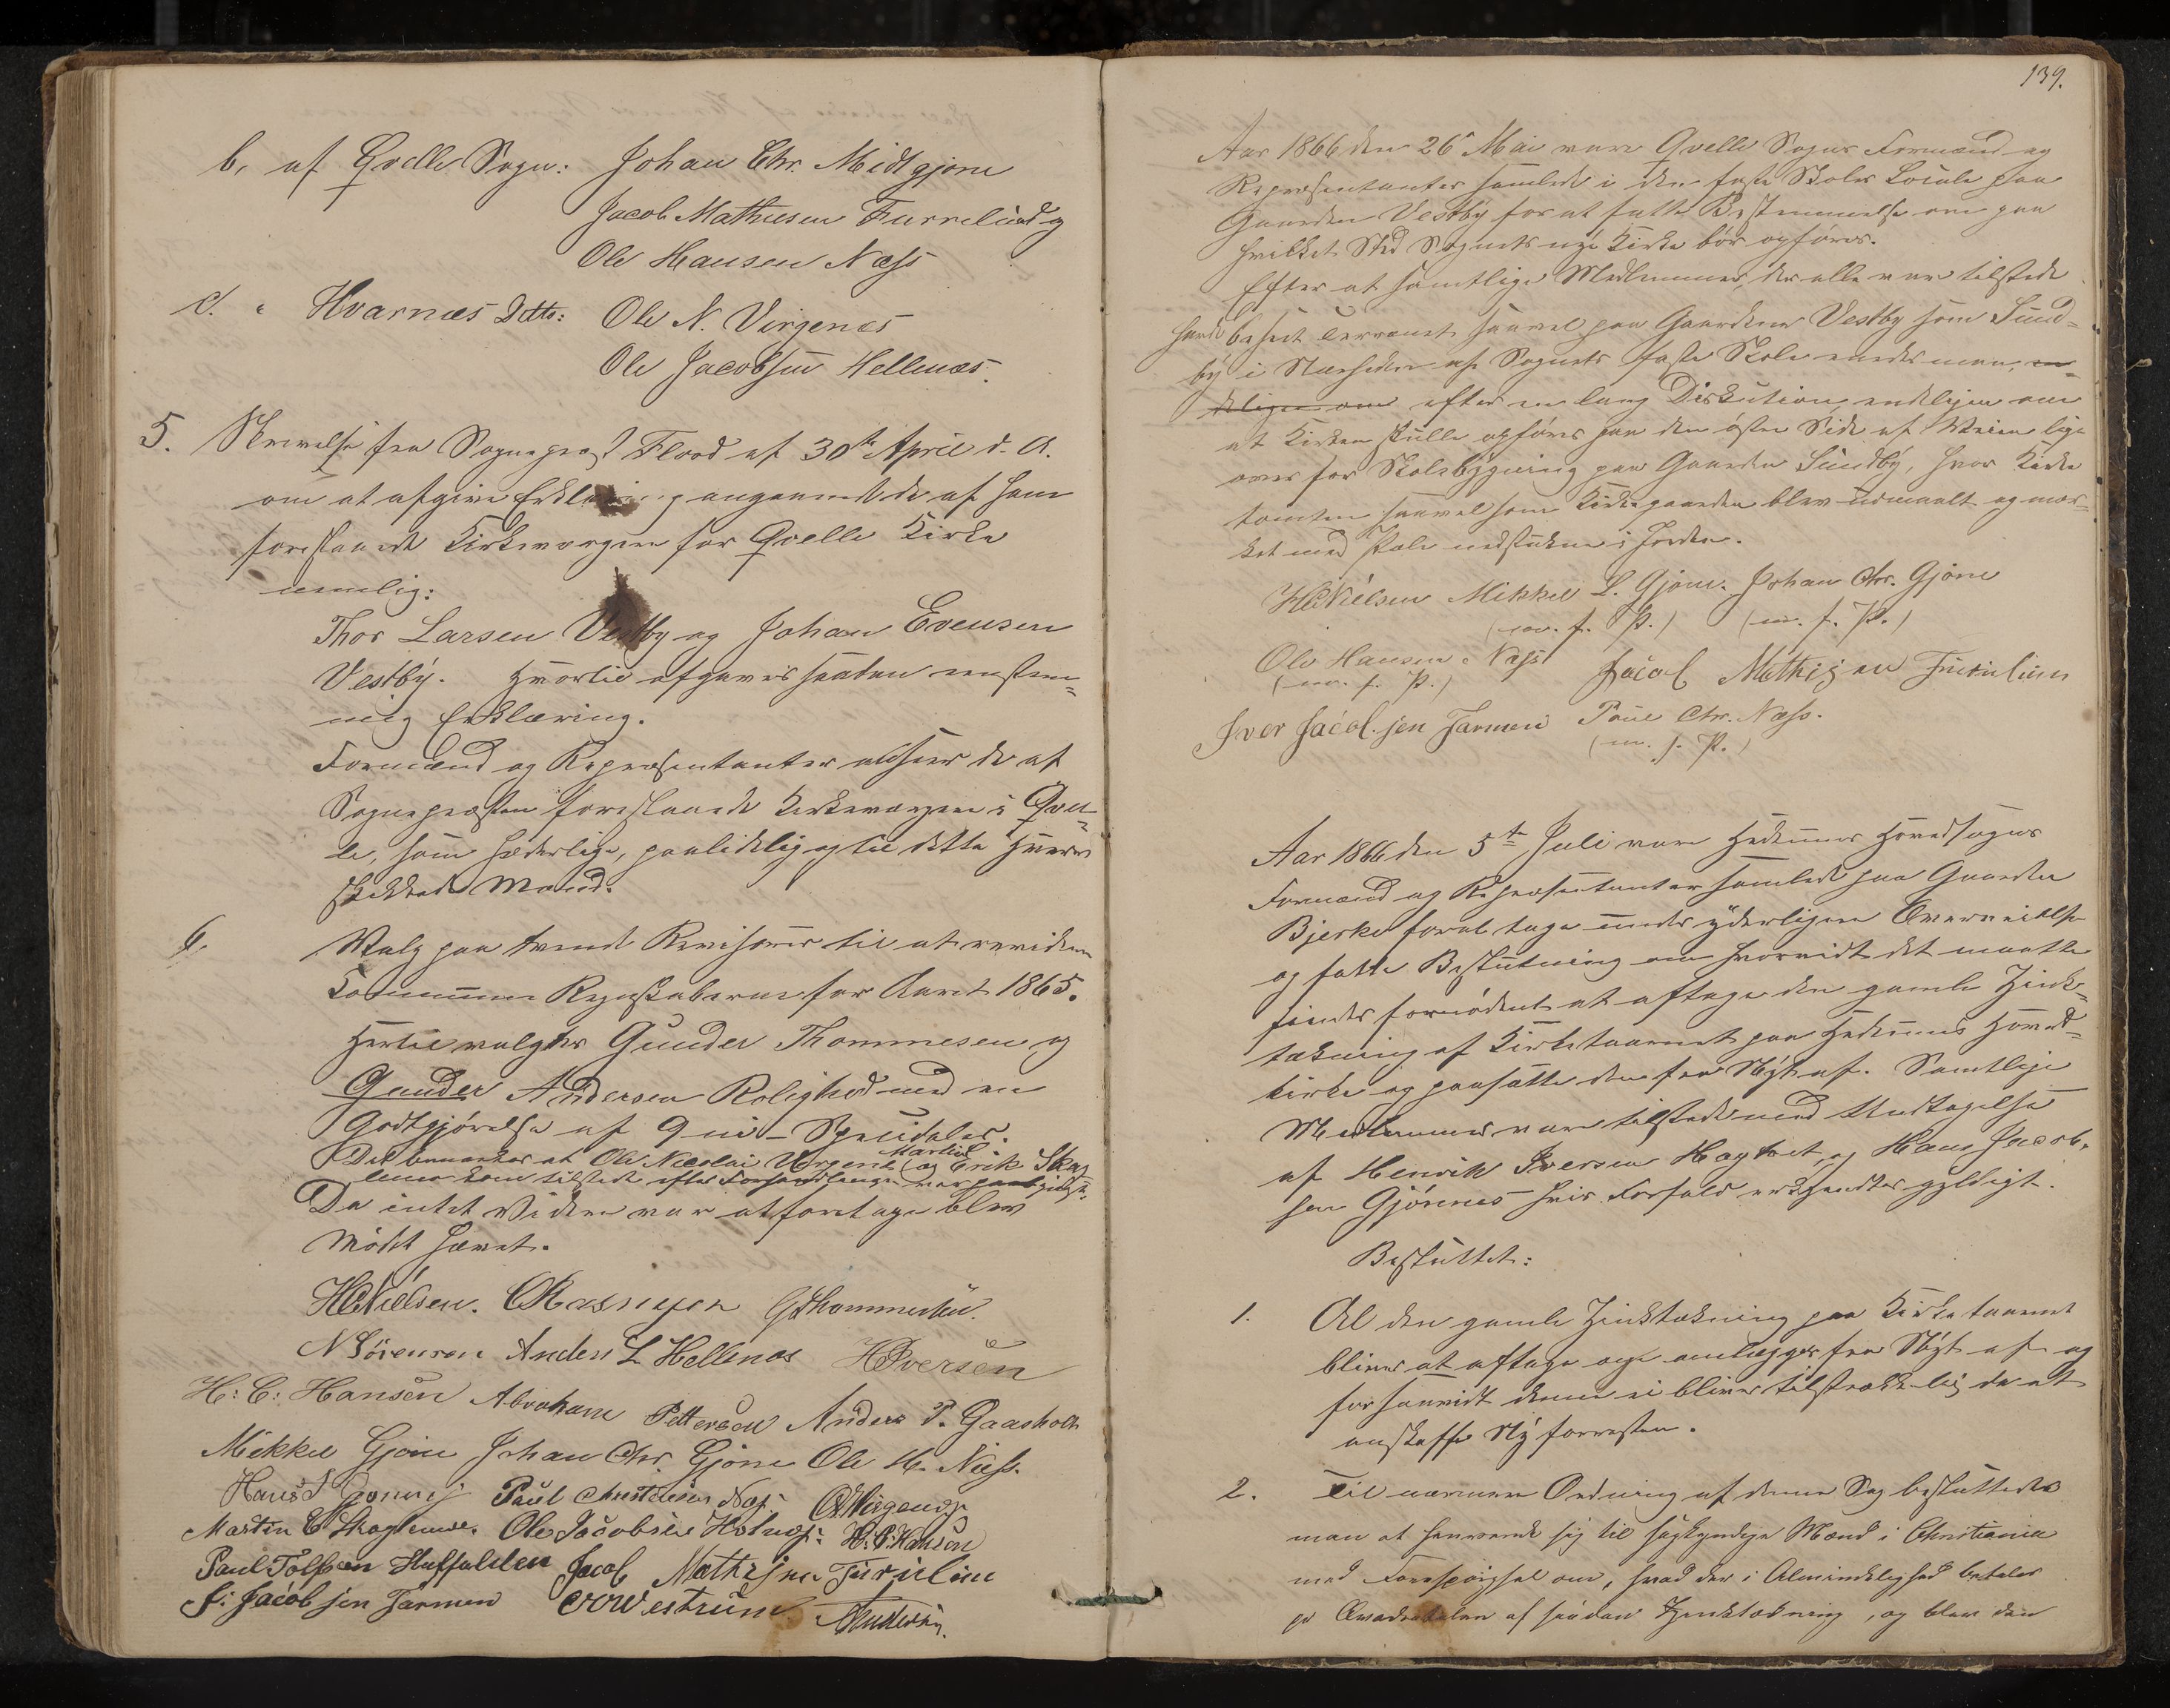 b, af Qvelle Sogn: Johan Chr. Midtgjone
Jacob Mathiesen Furrelund
Ole Hansen Næss
c. " Hvarnæs Ditto: Ole N. Virgenæs
Ole Jacobsen Hellenæs.
5. Skrivelse fra Sognepræst Flood af 30te April d. A.
om at afgive Erklæring angaaende de af ham
foreslaaede Kirkeværger for Qvelle Kirke
nemlig:
Thor Larsen Vestby og Johan Evensen
Vestby. Hvortil afgaves saadan eenstem=
mig Erklæring.
Formænd og Repræsentanter ansees de af
Sognepræsten foreslaaede Kirkeværger i Qvel=
le, som hæderlige, paalidelig og til dette Hverv
skikkede Mænd.
6. Valg paa tvende Revisorer til at revidere
Commune Regnskaberne for Aaret 1865.
Hertil valgtes Gunder Thommesen og
Gunder Andersen Rolighed med en
Godtgjørelse af 9 ni - Speciedaler.
Det bemærkes at Ole Nicolai Virgenæs og Martin Erik Skag
lerne kom tilstede efter Forhandlingen var
Da intet videre var at foretage blev
Mødet hævet.
HCNielsen. CRasmusen GThommesen.
N Sörensen Anders L Hellenæs HIversen
H: C: Hansen Abraham Pettersen Anders P. Gaasholt
Mikkel Gjone Johan Chr. Gjone Ole H. Næss.
Hans J Paul Christensen Næs.
Martin E Skaglerne. Ole Jacobsen H. P. Hansen
Paul Tolfsen Jacob Mathisen Furulun
I: Jacobsen Farmen Westrum
139.
Aar 1866 den 26de Mai vare Qvelle Sogns Formænd og
Repræsentanter samlede i den faste Skoles Locale paa
Gaarden Vestby for at fatte Bestemmelse om paa
hvilket Sted Sognets nye Kirke bør opføres.
Efter at samtlige Medlemmer, der alle vare tilstede
havde beseet Terrænet saavel paa Gaarden Vestby som Sund=
by i Nærheden af Sognets faste Skole enedes man, en=
deligen om efter en lang Diskution endeligen om
at Kirken skulle opføres paa den østre Side af Veien lige
over for Skolebygning paa Gaarden Sundby, hvor Kirke
tomten saavel som Kirkegaarden blev udmaalt og mær=
ket med Pæle nedstukne i Jorden.
HCNielsen Mikkel L. Gjone. Johan Chr. Gjone
(m. f. P.) (m. f. P.)
Ole Hansen Næss Jacob Mathisen Furulun
(m. f. P.)
Iver Jacobsen Farmen Paul Chr. Næss.
(m. f. P.)
Aar 1866 den 5te Juli vare Hedrums Hovedsogns
Formænd og Repræsentanter samlede paa Gaarden
Bjerke for at tage under yderligere Overveielse
og fatte Beslutning om hvorvidt det maatte
findes fornødent at aftage den gamle Zink=
tækning af Kirketaarnet paa Hedrums Hoved=
kirke og paasætte den fra Nyt af. Samtlige
Medlemmer vare tilstede med Undtagelse
af Henrik Iversen Hagtvet og Hans Jacob=
sen Gjønnes hvis Forfald erkjendtes gyldigt.
Besluttet:
1. At den gamle Zinktækning paa Kirketaarnet
bliver at aftage og omlægges fra Nyt af og
forsaavidt denne ei bliver tilstrækkelig da at
anskaffe Ny forresten.
2. Til nærmere Ordning af denne Sag besluttede
man at henvende sig til sagkyndige Mænd i Christiania
med Forespørgsel om, hvad der i Almindelighed betales
pr Qvadratalen af saadan Zinktækning, og blev den